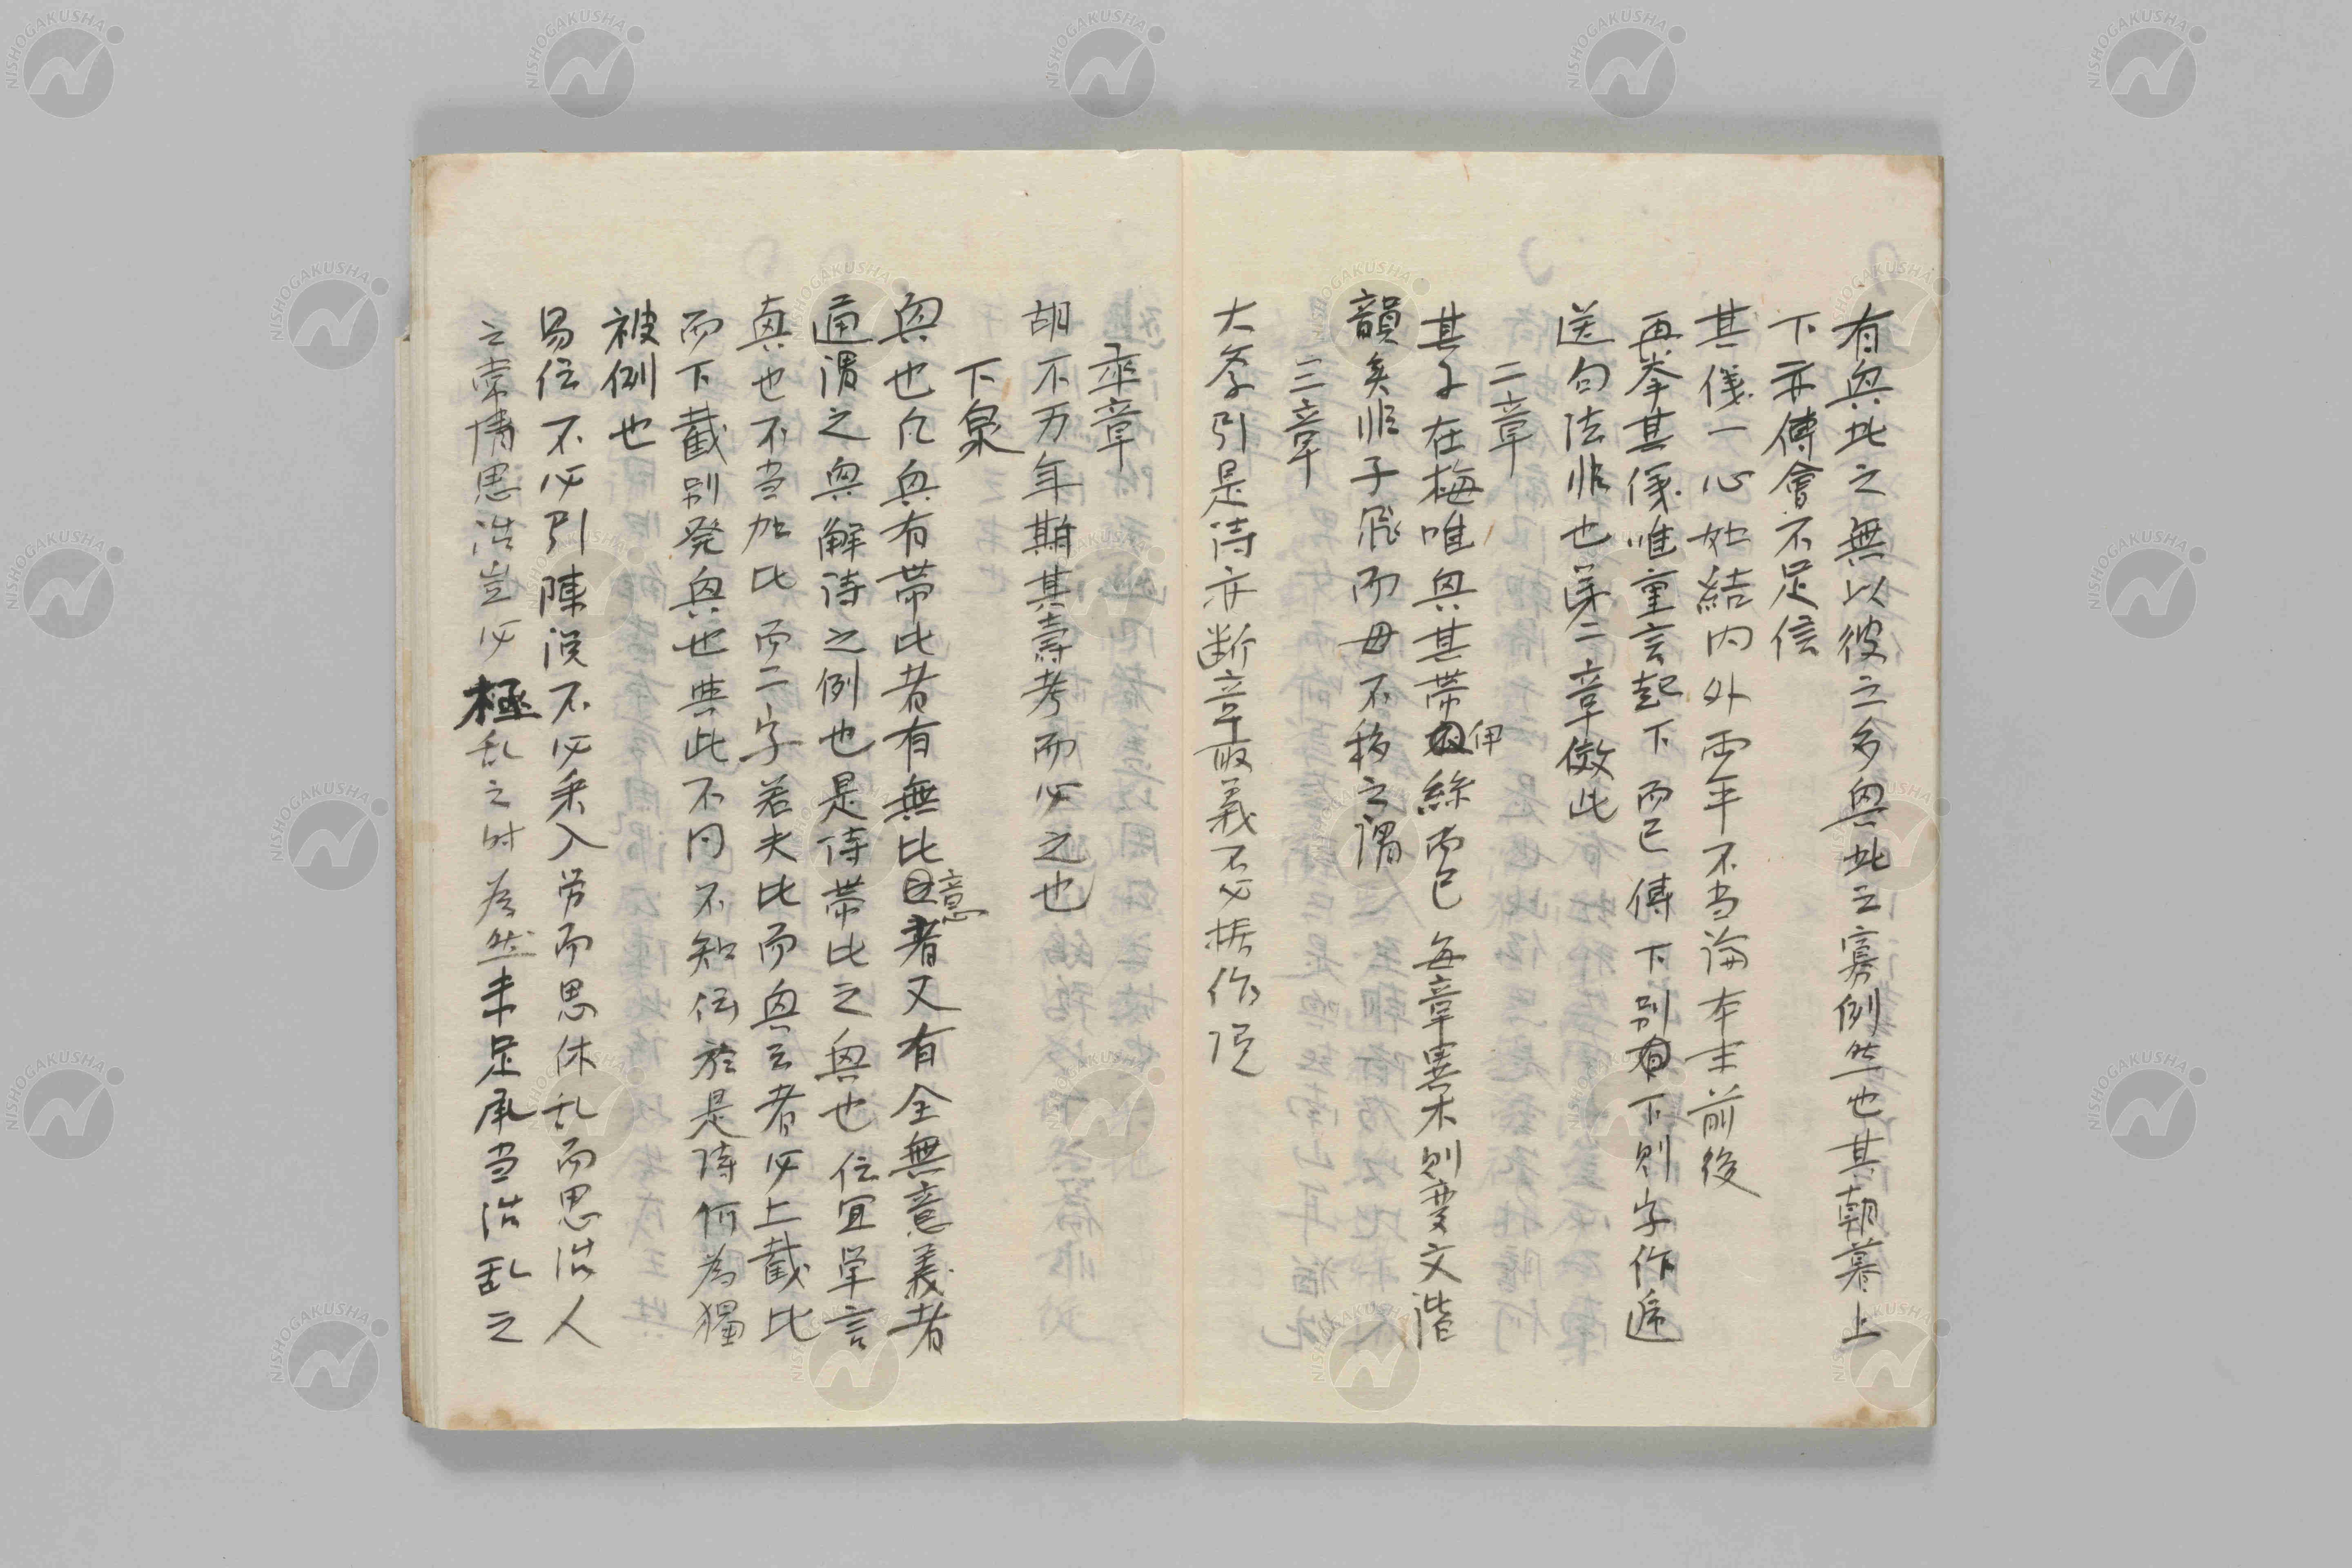 有興比之無以彼之多興此之寡例然也其朝暮上
下亦傅會不足信
其儀一心如結内外両平不当論本末前後
再挙其儀唯重言起下而已傅下別有下則字作遞
送句法非也第二章倣此
二章
其子在梅唯興其帯伊絲而已毎章害木則変文諧
韻矣非子飛而母不移之謂
三章
大学引是詩亦断章取義不必拠作説
卒章
胡不万年斯其寿考而必之也
下泉
興也凡興有帯比者有無比意者又有全無意義者
通謂之興解詩之例也是詩帯比之興也但宜単言
興也不当加比而二字若夫比而興云者必上截比
而下截別発興也与此不同不知伝於是詩何為獨
被例也
易伝不必引陳説不必乗入労而思休乱而思治人
之常情思治豈必極乱之時為然未足承当治乱之